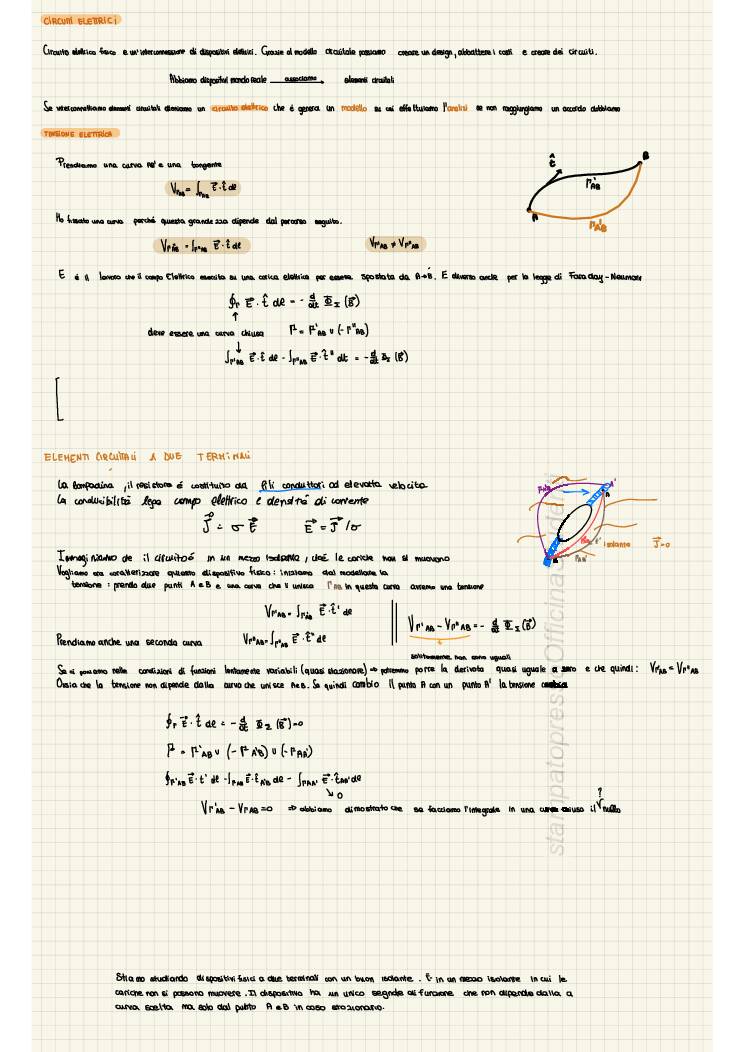 CIRCUITI ELETTRICI
Circuito elettrico fisico e un'interconnessione di dispositivi elettrici. Grazie al modello circuitale possiamo creare un design, abbattere i costi e creare dei circuiti.
Abbiamo dispositivi mondo reale associamo → elementi circuitali
Se interconnettiamo elementi circuitali otteniamo un circuito elettrico che é genera un modello su cui effettuiamo l'analisi se non raggiungiamo un accordo dobbiamo
TENSIONE ELETTRICA
Prendiamo una curva e una tangente
t̂ B
Γ'AB
A
Γ''AB
VΓAB = ∫ΓAB E⃗·t̂ dℓ
Ho fissato una curva perché questa grandezza dipende dal percorso seguito.
VΓ''AB = ∫Γ''AB E⃗·t̂ dℓ VΓ'AB ≠ VΓ''AB
E é il lavoro che il campo Elettrico esercita su una carica elettrica per essere spostata da A→B. E diverso anche per la legge di Faraday-Neumann
∮Γ E⃗·t̂ dℓ = - d/dt ΦΣ(B⃗)
↑
deve essere una curva chiusa Γ = Γ'AB ∪ (-Γ''AB)
↓
∫Γ'AB E⃗·t̂ dℓ - ∫Γ''AB E⃗·t̂'' dℓ = - d/dt ΦΣ(B⃗)
ELEMENTI CIRCUITALI A DUE TERMINALI
La lampadina, il resistore é costituito da fili conduttori ad elevata velocita
La conducibilitá lega campo elettrico e densitá di corrente
J⃗ = σ E⃗ E⃗ = J⃗/σ
A'
A
isolante J⃗=0
Immaginiamo che il circuito é in un mezzo isolante, cioé le cariche non si muovono
Vogliamo ora caratterizzare questo dispositivo fisico: iniziamo dal modellare la
tensione: prendo due punti A e B e una curva che li unisce ΓAB in questa curva avremo una tensione
VΓ'AB = ∫Γ'AB E⃗·t̂' dℓ
VΓ'AB - VΓ''AB = - d/dt ΦΣ(B⃗)
Prendiamo anche una seconda curva VΓ''AB = ∫Γ''AB E⃗·t̂'' dℓ
solitamente non sono uguali
Se ci poniamo nelle condizioni di funzioni lentamente variabili (quasi stazionare) ⇒ potremmo porre la derivata quasi uguale a zero e che quindi: VΓ'AB = VΓ''AB
Ossia che la tensione non dipende dalla curva che unisce A e B. Se quindi cambio il punto A con un punto A' la tensione cambia
∮Γ E⃗·t̂ dℓ = - d/dt ΦΣ(B⃗)=0
Γ = Γ'AB ∪ (-Γ A'B) ∪ (-ΓAA')
∮Γ'AB E⃗·t' dℓ - ∫ΓAB E⃗·t̂A'B dℓ - ∫ΓAA' E⃗·t̂AA' dℓ
↘ 0
VΓ'AB - VΓAB = 0 ⇒ abbiamo dimostrato che se facciamo l'integrale in una curva chiusa il V nullo
?
Stiamo studiando dispositivi fisici a due terminali con un buon isolante. E in un mezzo isolante in cui le
cariche non si possono muovere. Il dispositivo ha un unico segnale di funzione che non dipende dalla a
curva scelta ma solo dal punto A e B in caso stazionario.